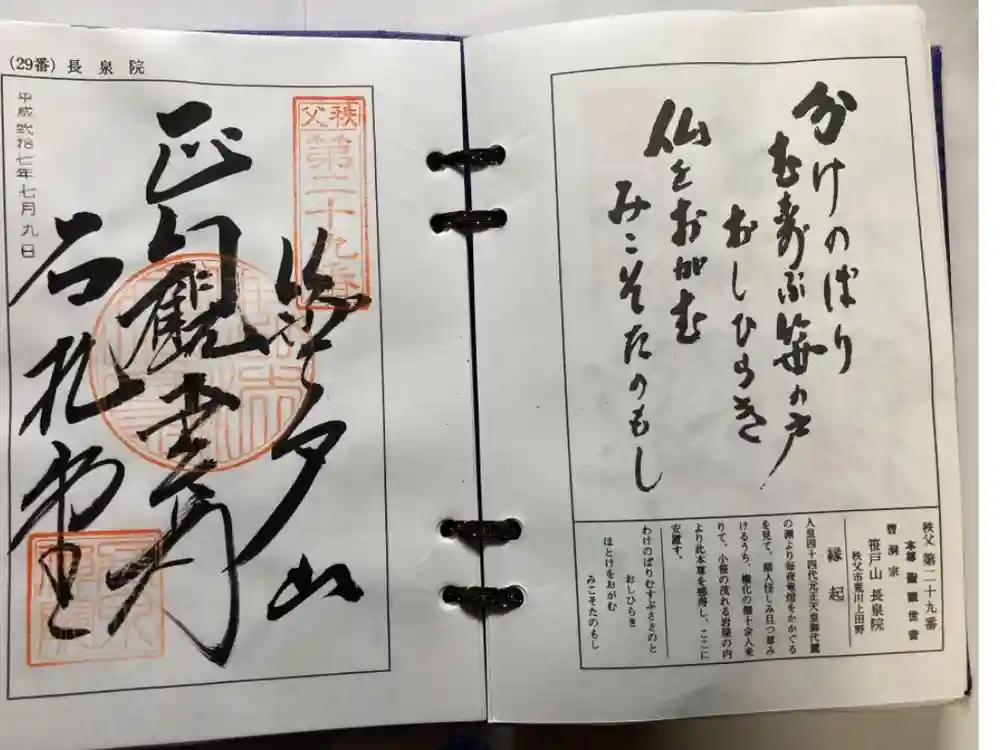 分けのぼり
むすぶ笹の戸
おしひらき
仏をおがむ
みこそたのもし
秩父 第二十九番
本尊 聖観世音
曹洞宗
笹戸山 長泉院
秩父市荒川上田野
縁起
人皇四十四代元正天皇御代
の淵より毎夜竜燈をかかぐる
を見て、諸人怪しみ且つ尊み
けるうち、権化の僧十余人来
りて、小笹の茂れる岩屋の内
より此本尊を感得し、ここに
安置す。
わけのぼりむすぶささのと
おしひらき
ほとけをおがむ
みこそたのもし
(29番) 長泉院
秩父
第二十九番
笹戸山
正観世音
石札堂
平成弐拾七年七月九日